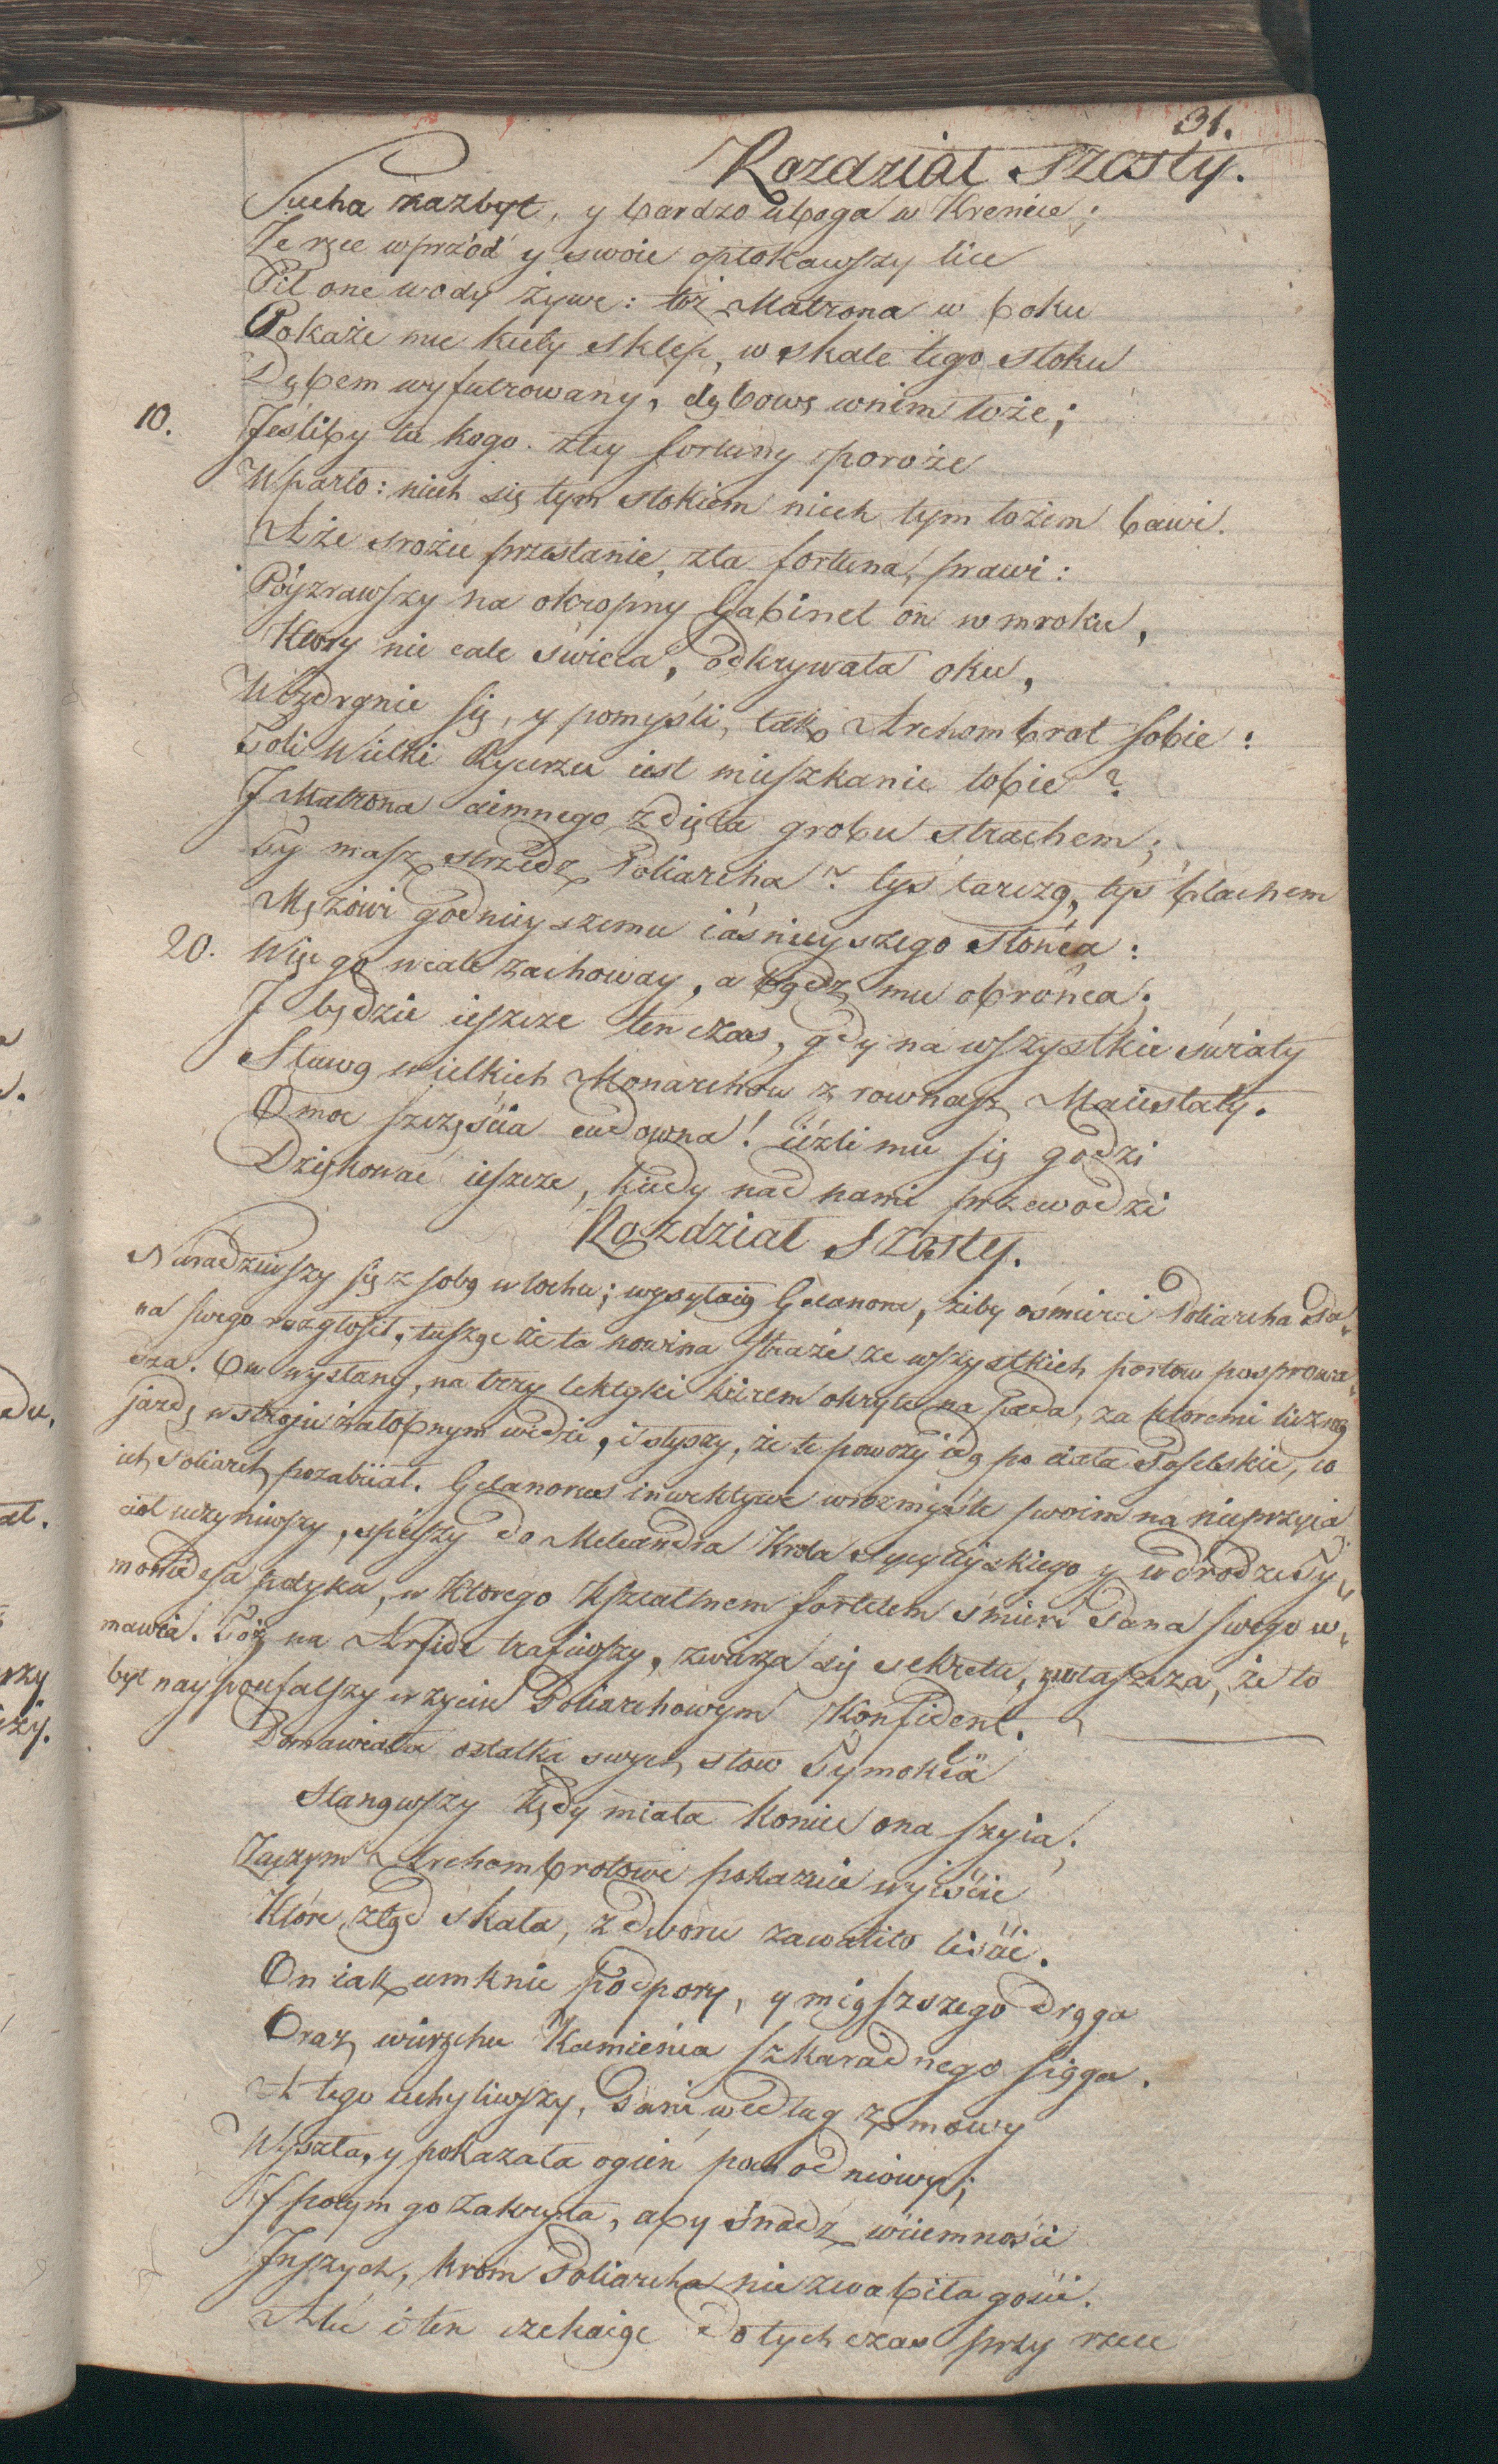 31.
Rozdział szosty.
Sucha nazbyt, y bardzo uboga w Krenice;
Ze rzce wprzód y swoie opłokawszy lice
Pił one wody żywe: toż Matrona w boku
Pokaże mu kuty sklep, w skale tego stoku
Dębem wyfutrowany, dębowe wnim łoże;
10. Jeśliby tu kogo złey fortuny poroże
Wparło: niech się tym stokiem niech tym łożem bawi.
Aże srożeć przestanie, zła fortuna, prawi:
Poyzrawszy na okropny Gabinet on w mroku,
Ktory nie cale świeca, odkrywała oku,
Wzdrgnie się, y pomyśli, tak Archombrot sobie:
Toli Wielki Rycerzu iest mieszkanie tobie?
J Matrona ciemnego zdięta grobu strachem;
Ty masz strzedz Poliarcha? tyś tarczą, tyś blachem
Mężowi godnieyszemu iaśnieyszego słońca:
20. Więc go wcale zachoway, a bądz mu obrońca;
J będzie ieszcze ten czas, gdy na wszystkie światy
Sławą wielkich Monarchow zrównasz Maiestaty.
O moc szczęścia cudowna! ieżli mu się godzi
Dziękować ieszcze, kiedy nad nami przewodzi
Rozdział Szosty.
Naradziwszy się z sobą w lochu; wysyłaią Gelanora, żeby ośmierci Poliarcha Pa„
na swego rozgłosił, tusząc że ta nowina straże ze wszystkich portow posprowa„
dza. On wysłany, na trzy lektyki kirem okryte na pada, za ktoremi liczną
jazdę w stroju żałobnym widzi, i słyszy, że te powozy idą po ciała Poselskie, co
ich Poliarch pozabiiał. Gelanorus inwektywe wrozmyśle swoim na nieprzyia„
ciół uczyniwszy, spieszy do Meleandra Krola Sycylijskiego y w drodze Ty„
monidesa potyka, w ktorego kształtnem fortelem śmierć Pana swego w„
mawia. Toż na Arside trafiwszy, zwierza się sekretu, zwłaszcza, że to
był naypoufalszy w zyciu Poliarchowym Konfident.
Domawiała ostatka swych słow Tymokleä
Stanąwszy kędy miała koniec ona szyia;
Zaczym Archombrotowi pokazuie wyiście
Które ztąd skała, z dworu zawaliło liście.
On iak umknie podpory, y miąszszego drąga
Oraz wierzchu Kamienia szkaradnego siąga.
A tego uchyliwszy, Pani według zmowy
Wyszła, y pokazała ogień pochodniowy;
Wpołym go zakryła, aby snadź wciemności
Jnszych, krom Poliarcha nie zwabiła gości.
Ale i ten czekaiąc do tych czas przy rzece